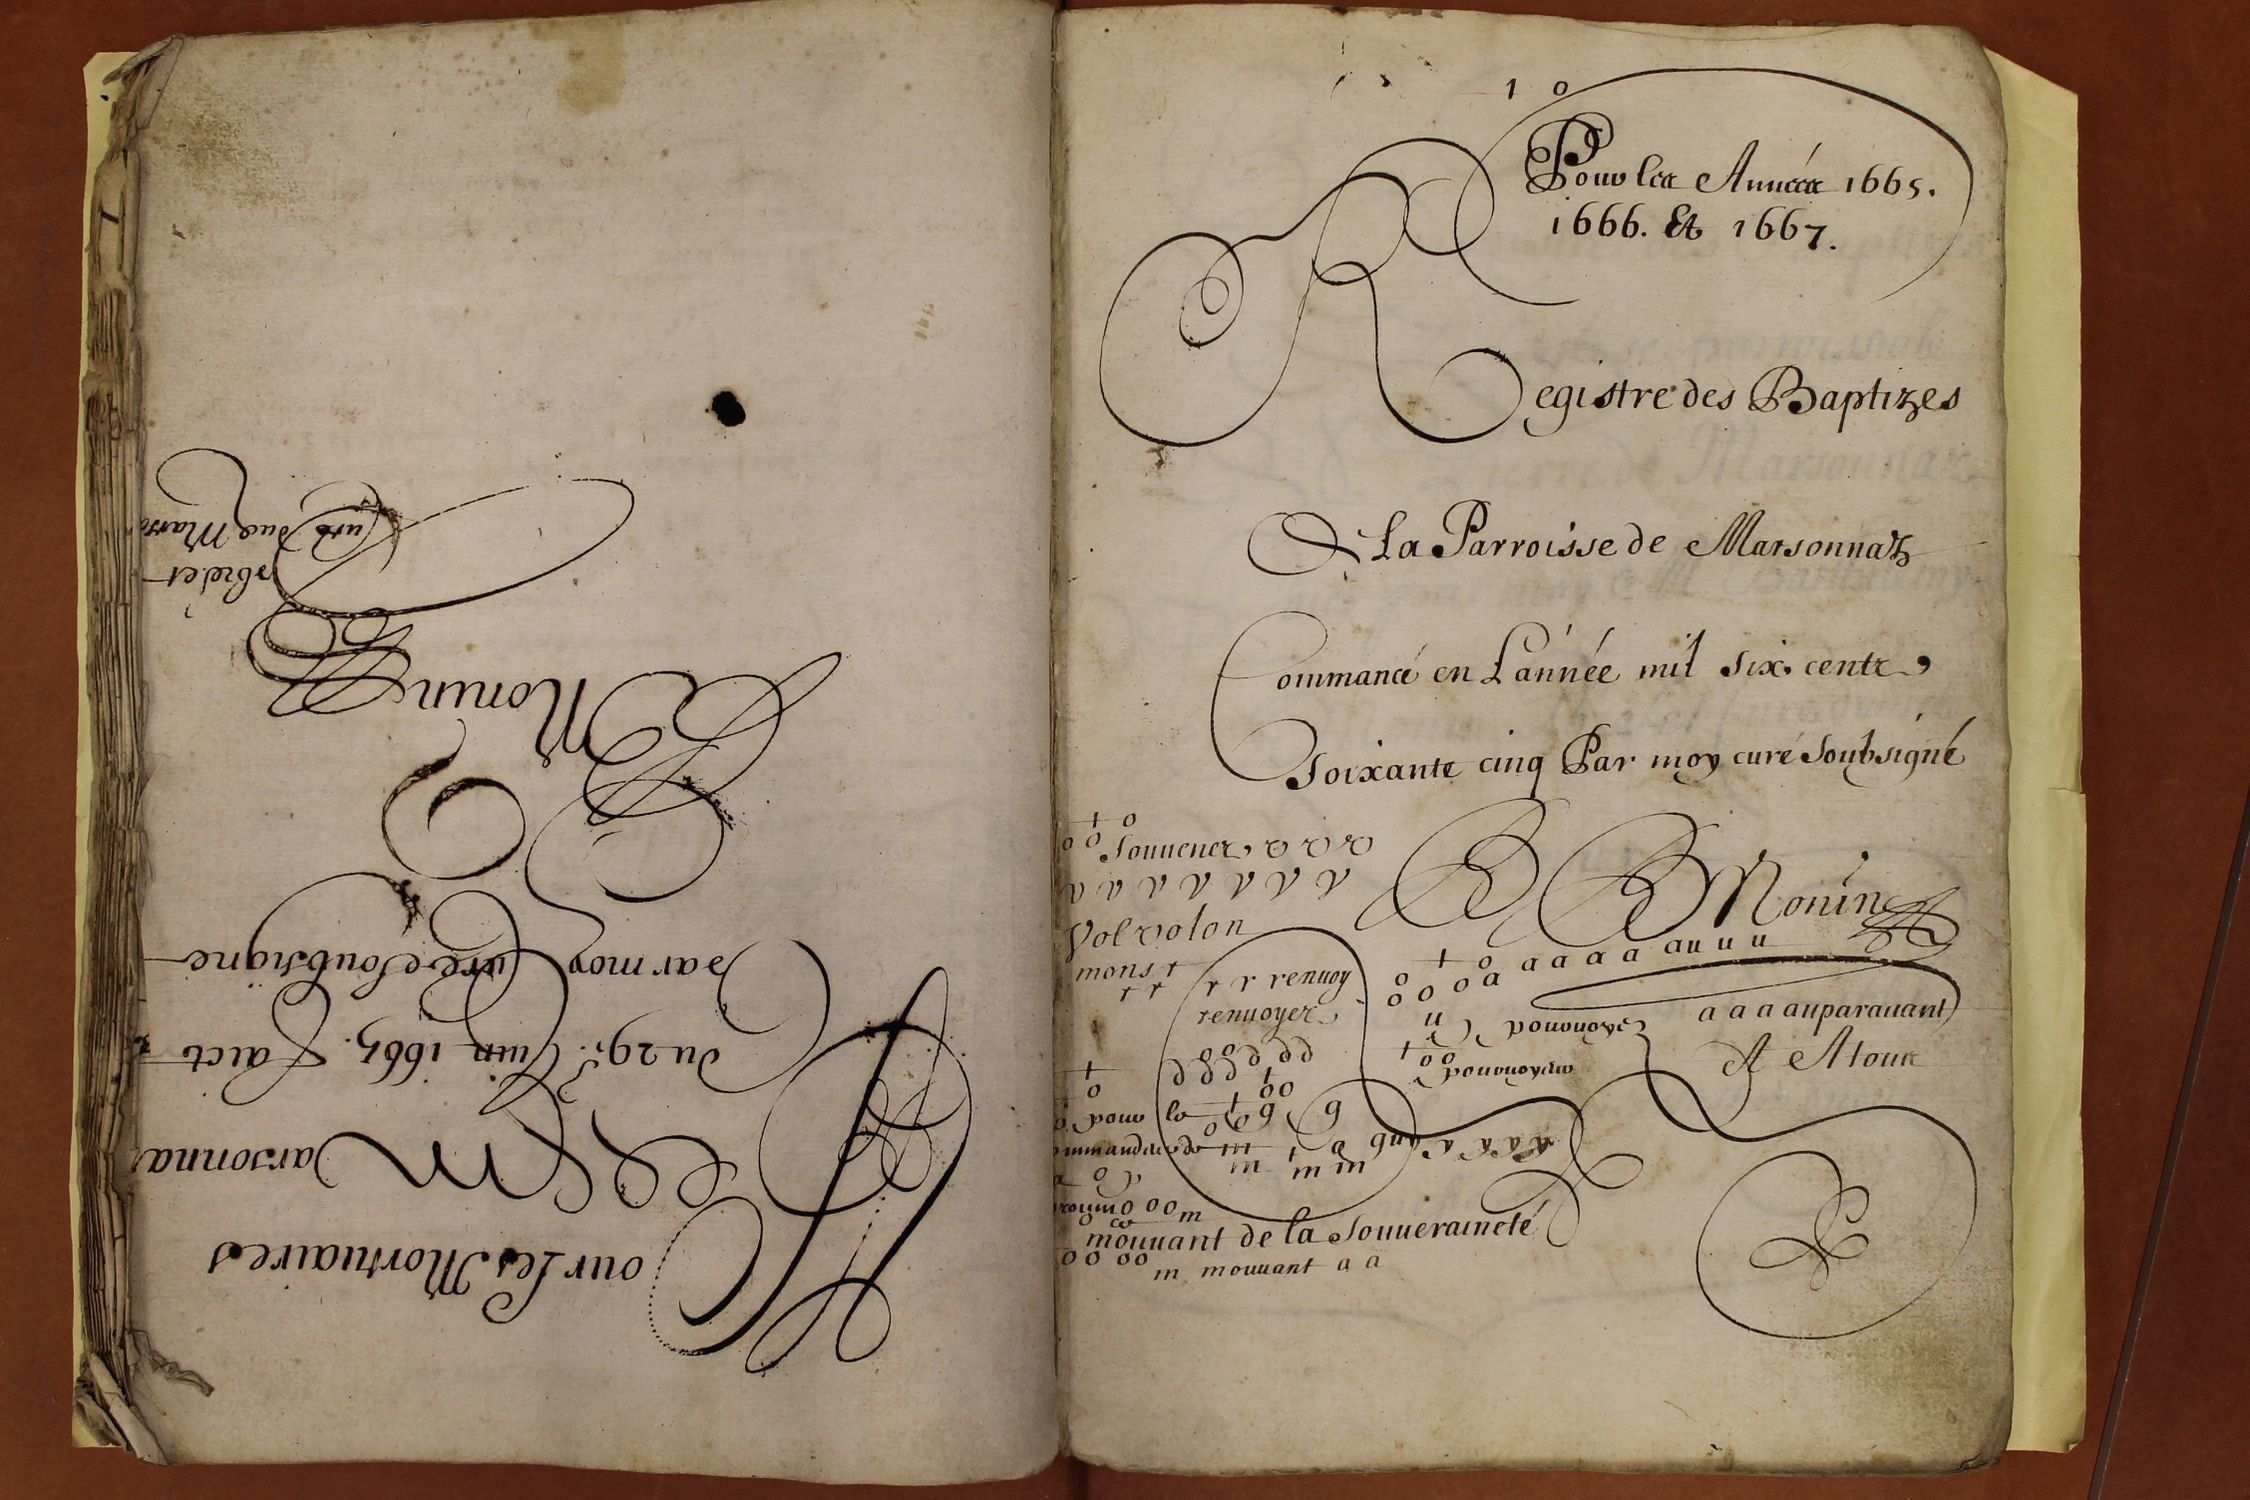 Pour les Mortuaires
De Marsonna
du 29e. Juin 1665. Faict
Par moy Curé soubsigné
Monin
Curé dud Marso
1 0
Pour les Années 1665.
1666. Et 1667.
Registre des Baptizes
De La Parroisse de Marsonnaz
Commancé en L'année mil six cents
soixante cinq Par moy curé soubsigné
B B Monin
souuenez v v v
v v v v v v v
Vol volon
mons r r r renuoy
r r renuoyez
a a a a a au u u
a a a auparauant
A Atous
d d d d d d
pour le
m m m m
mouuant de la souueraineté
m mouuant a a